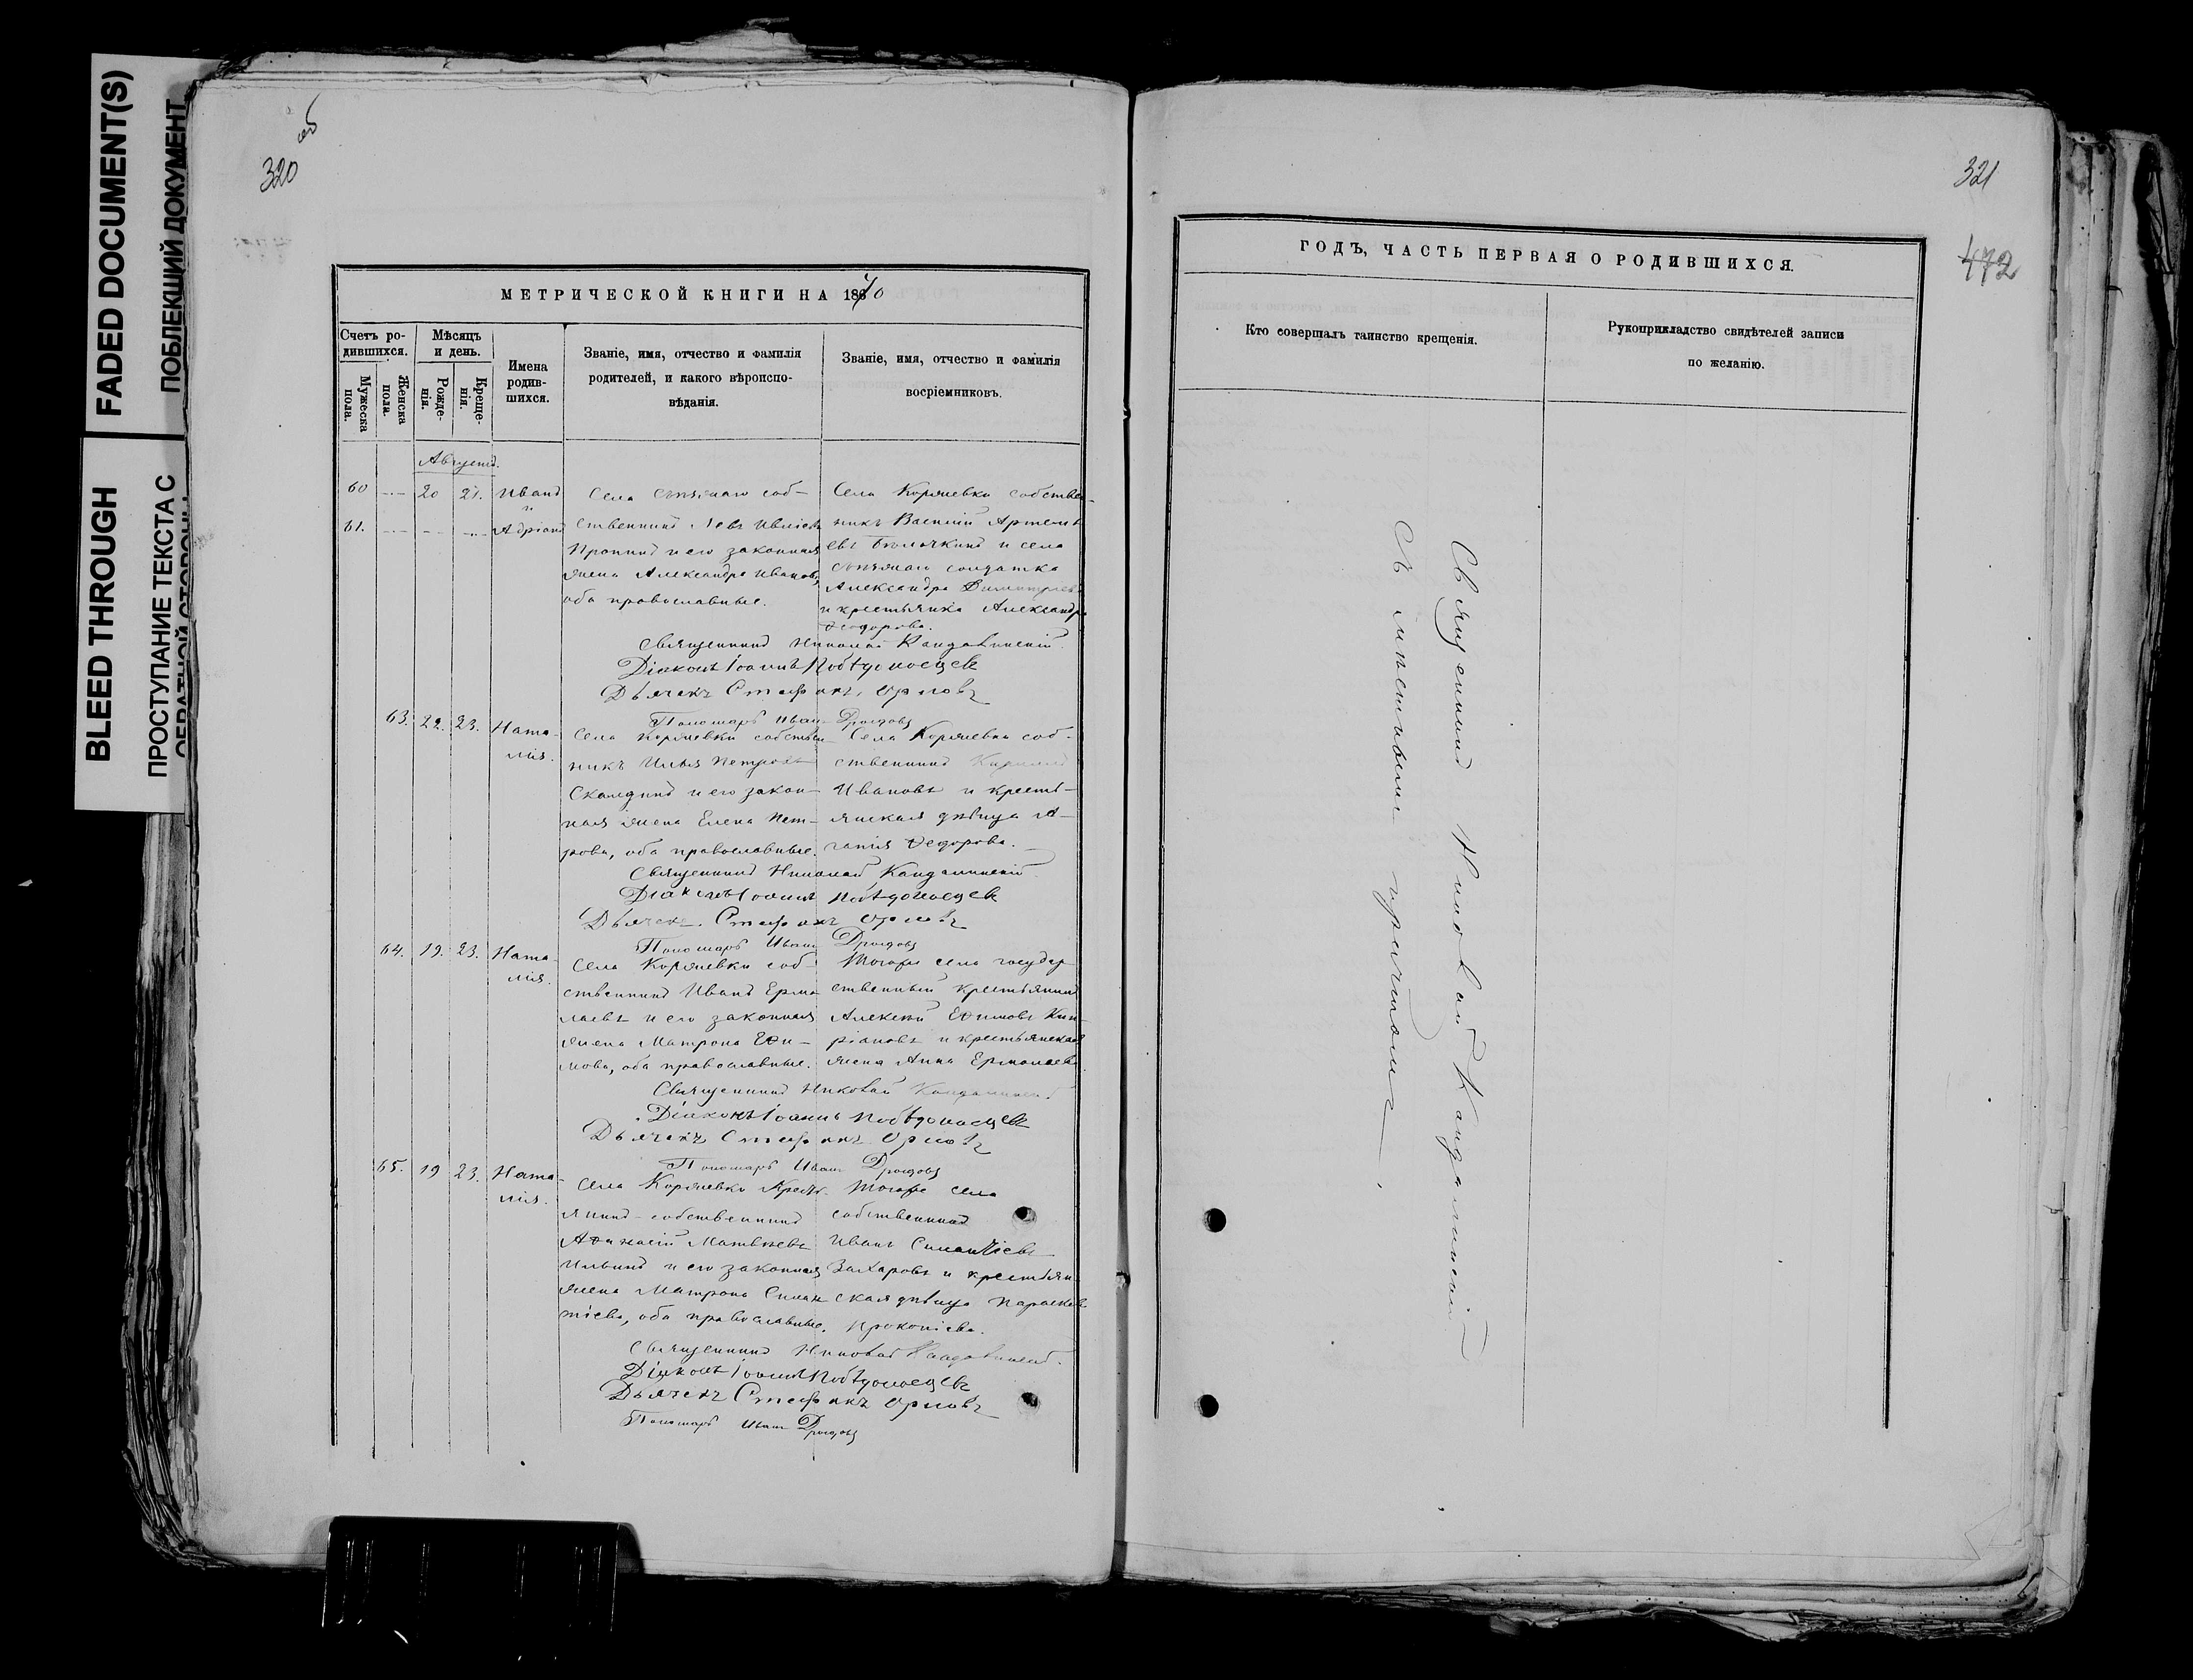 FADED DOCUMENT(S)
ПОБЛЕКШИЙ ДОКУМЕНТ
BLEED THROUGH
ПРОСТУПАНИЕ ТЕКСТА С
ОБРАТНОЙ СТОРОНЫ
об
320
МЕТРИЧЕСКОЙ КНИГИ НА 1870
Счетъ ро-
дившихся.
Мужеска
пола.
Женска
пола.
Мѣсяцъ
и день.
Рожде-
нія.
Креще-
нія.
Имена
родив-
шихся.
Званіе, имя, отчество и фамилія
родителей, и какого вѣроиспо-
вѣданія.
Званіе, имя, отчество и фамилія
восріемниковъ.
Августъ.
60 20 21. Иванъ
и
61. Адріанъ
Села соб-
ственникъ Левъ
Пронинъ и его законная
жена Александра Иванова,
оба православные.
Села Коржевки собствен-
никъ Василій Артемь
евъ Бѣлочкинъ и села
солдатка
Александра Димитріева
и крестьянка Александра
Ѳеодорова.
Священникъ Николай Кандалинскій.
Діаконъ Іоаннъ Побѣдоносцевъ
Дьячекъ Стефанъ Орловъ
Пономарь Иванъ Дроздовъ
63. 22. 23. Ната-
лія.
Села Коржевки собствен-
никъ Илья Петровъ
Скалдинъ и его закон-
ная жена Елена Пет-
рова, оба православные.
Села Коржевки соб-
ственникъ Кириллъ
Ивановъ и кресть-
янская дѣвица А-
гапія Ѳедорова.
Священникъ Николай Кандалинскій.
Діаконъ Іоаннъ Побѣдоносцевъ
Дьячекъ Стефанъ Орловъ
Пономарь Иванъ Дроздовъ
64. 19. 23. Ната-
лія.
Села Коржевки соб-
ственникъ Иванъ Ермо-
лаевъ и его законная
жена Матрона Ефи-
мова, оба православные.
Тогоже села государ
ственный крестьянинъ
Алексѣй Ефимовъ Кип-
ріановъ и крестьянская
жена Анна Ермолаева.
Священникъ Николай Кандалинскій
Діаконъ Іоаннъ Побѣдоносцевъ
Дьячекъ Стефанъ Орловъ
Пономарь Иванъ Дроздовъ
65. 19 23. Ната-
лія.
Села Коржевки Кресть-
янинъ-собственникъ
Аѳанасій Матвѣевъ
Ильинъ и его законная
жена Матрона Силан
тіева, оба православные.
Тогоже села
собственникъ
Иванъ Силантіевъ
Захаровъ и крестьян-
ская дѣвица Параскева
Прокопіева.
Священникъ Николай Кандалинскій.
Діаконъ Іоаннъ Побѣдоносцевъ
Дьячекъ Стефанъ Орловъ
Пономарь Иванъ Дроздовъ
321
472
ГОДЪ, ЧАСТЬ ПЕРВАЯ О РОДИВШИХСЯ.
Кто совершалъ таинство крещенія.
Рукоприкладство свидѣтелей записи
по желанію.
Священникъ Николай Кандалинскій
Съ мѣстнымъ причтомъ.